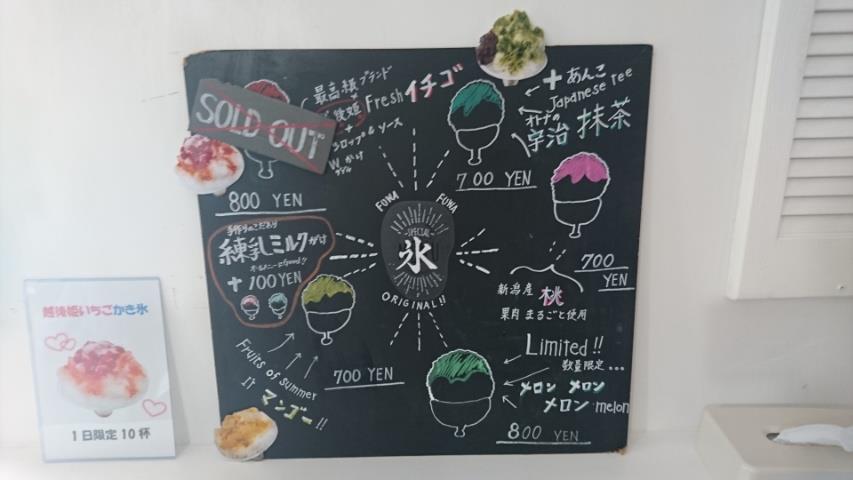 SOLD OUT
最高級ブランド
Fresh イチゴ
+
シロップ&ソース
Wがけ
800 YEN
+ あんこ
Japanese
オトナの
宇治 抹茶
700 YEN
練乳ミルクがけ
+ 100 YEN
FUWA FUWA
SPECIAL
氷
ORIGINAL!!
700
YEN
新潟産 桃
果肉まるごと使用
Fruits of summer
マンゴー!!
700 YEN
Limited!!
数量限定...
メロン メロン
メロン melon
800 YEN
越後姫いちごかき氷
1日限定10杯